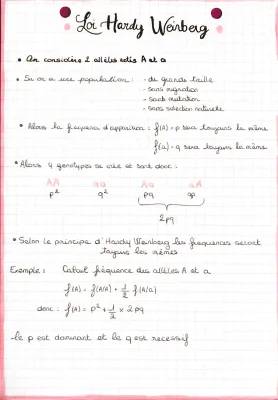 Loi Hardy Weinberg
• On considère 2 allèles notés A et a
• Si on a une population : - de grande taille
- sans migration
- sans mutation
- sans sélection naturelle
• Alors la fréquence d'apparition : f(A) = p sera toujours la même
f(a) = q sera toujours la même
• Alors 4 génotypes se crée et sont donc :
AA aa Aa aA
p² q² pq qp
2pq
• Selon le principe d'Hardy Weinberg les fréquences seront
toujours les mêmes
Exemple : Calcul fréquence des allèles A et a
f(A) = f(A/A) + 1/2 f(A/a)
donc : f(A) = p² + 1/2 × 2pq
-le p est dominant et le q est recessif